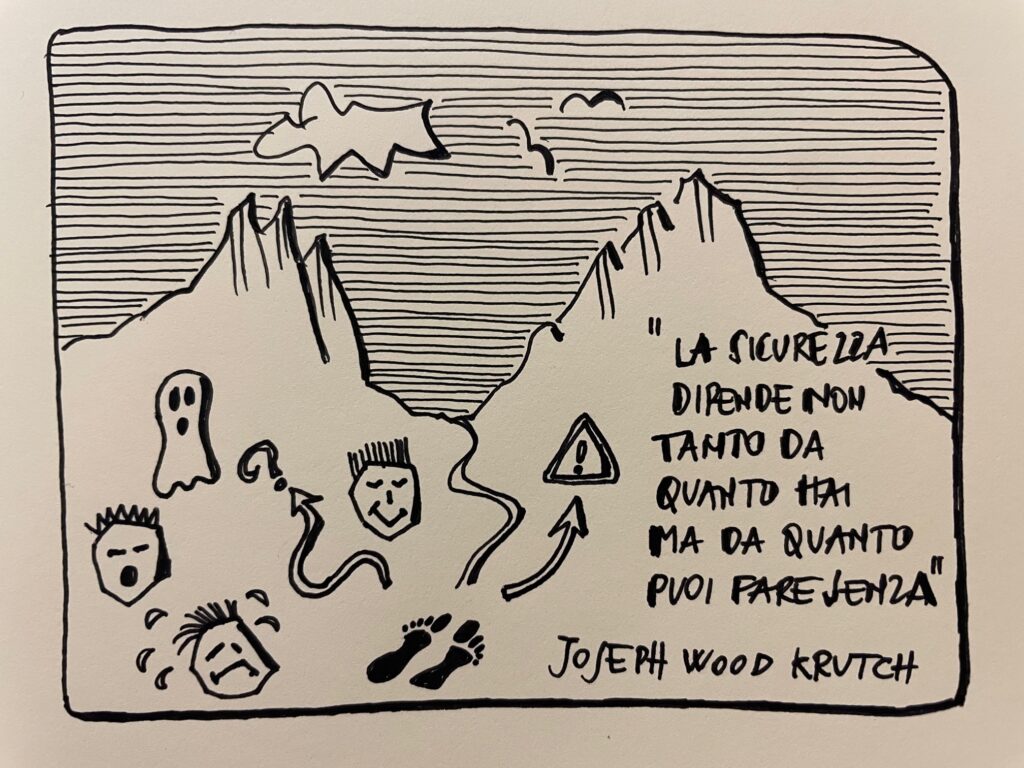 "LA SICUREZZA
DIPENDE NON
TANTO DA
QUANTO HAI
MA DA QUANTO
PUOI FARE SENZA"
JOSEPH WOOD KRUTCH
?
!